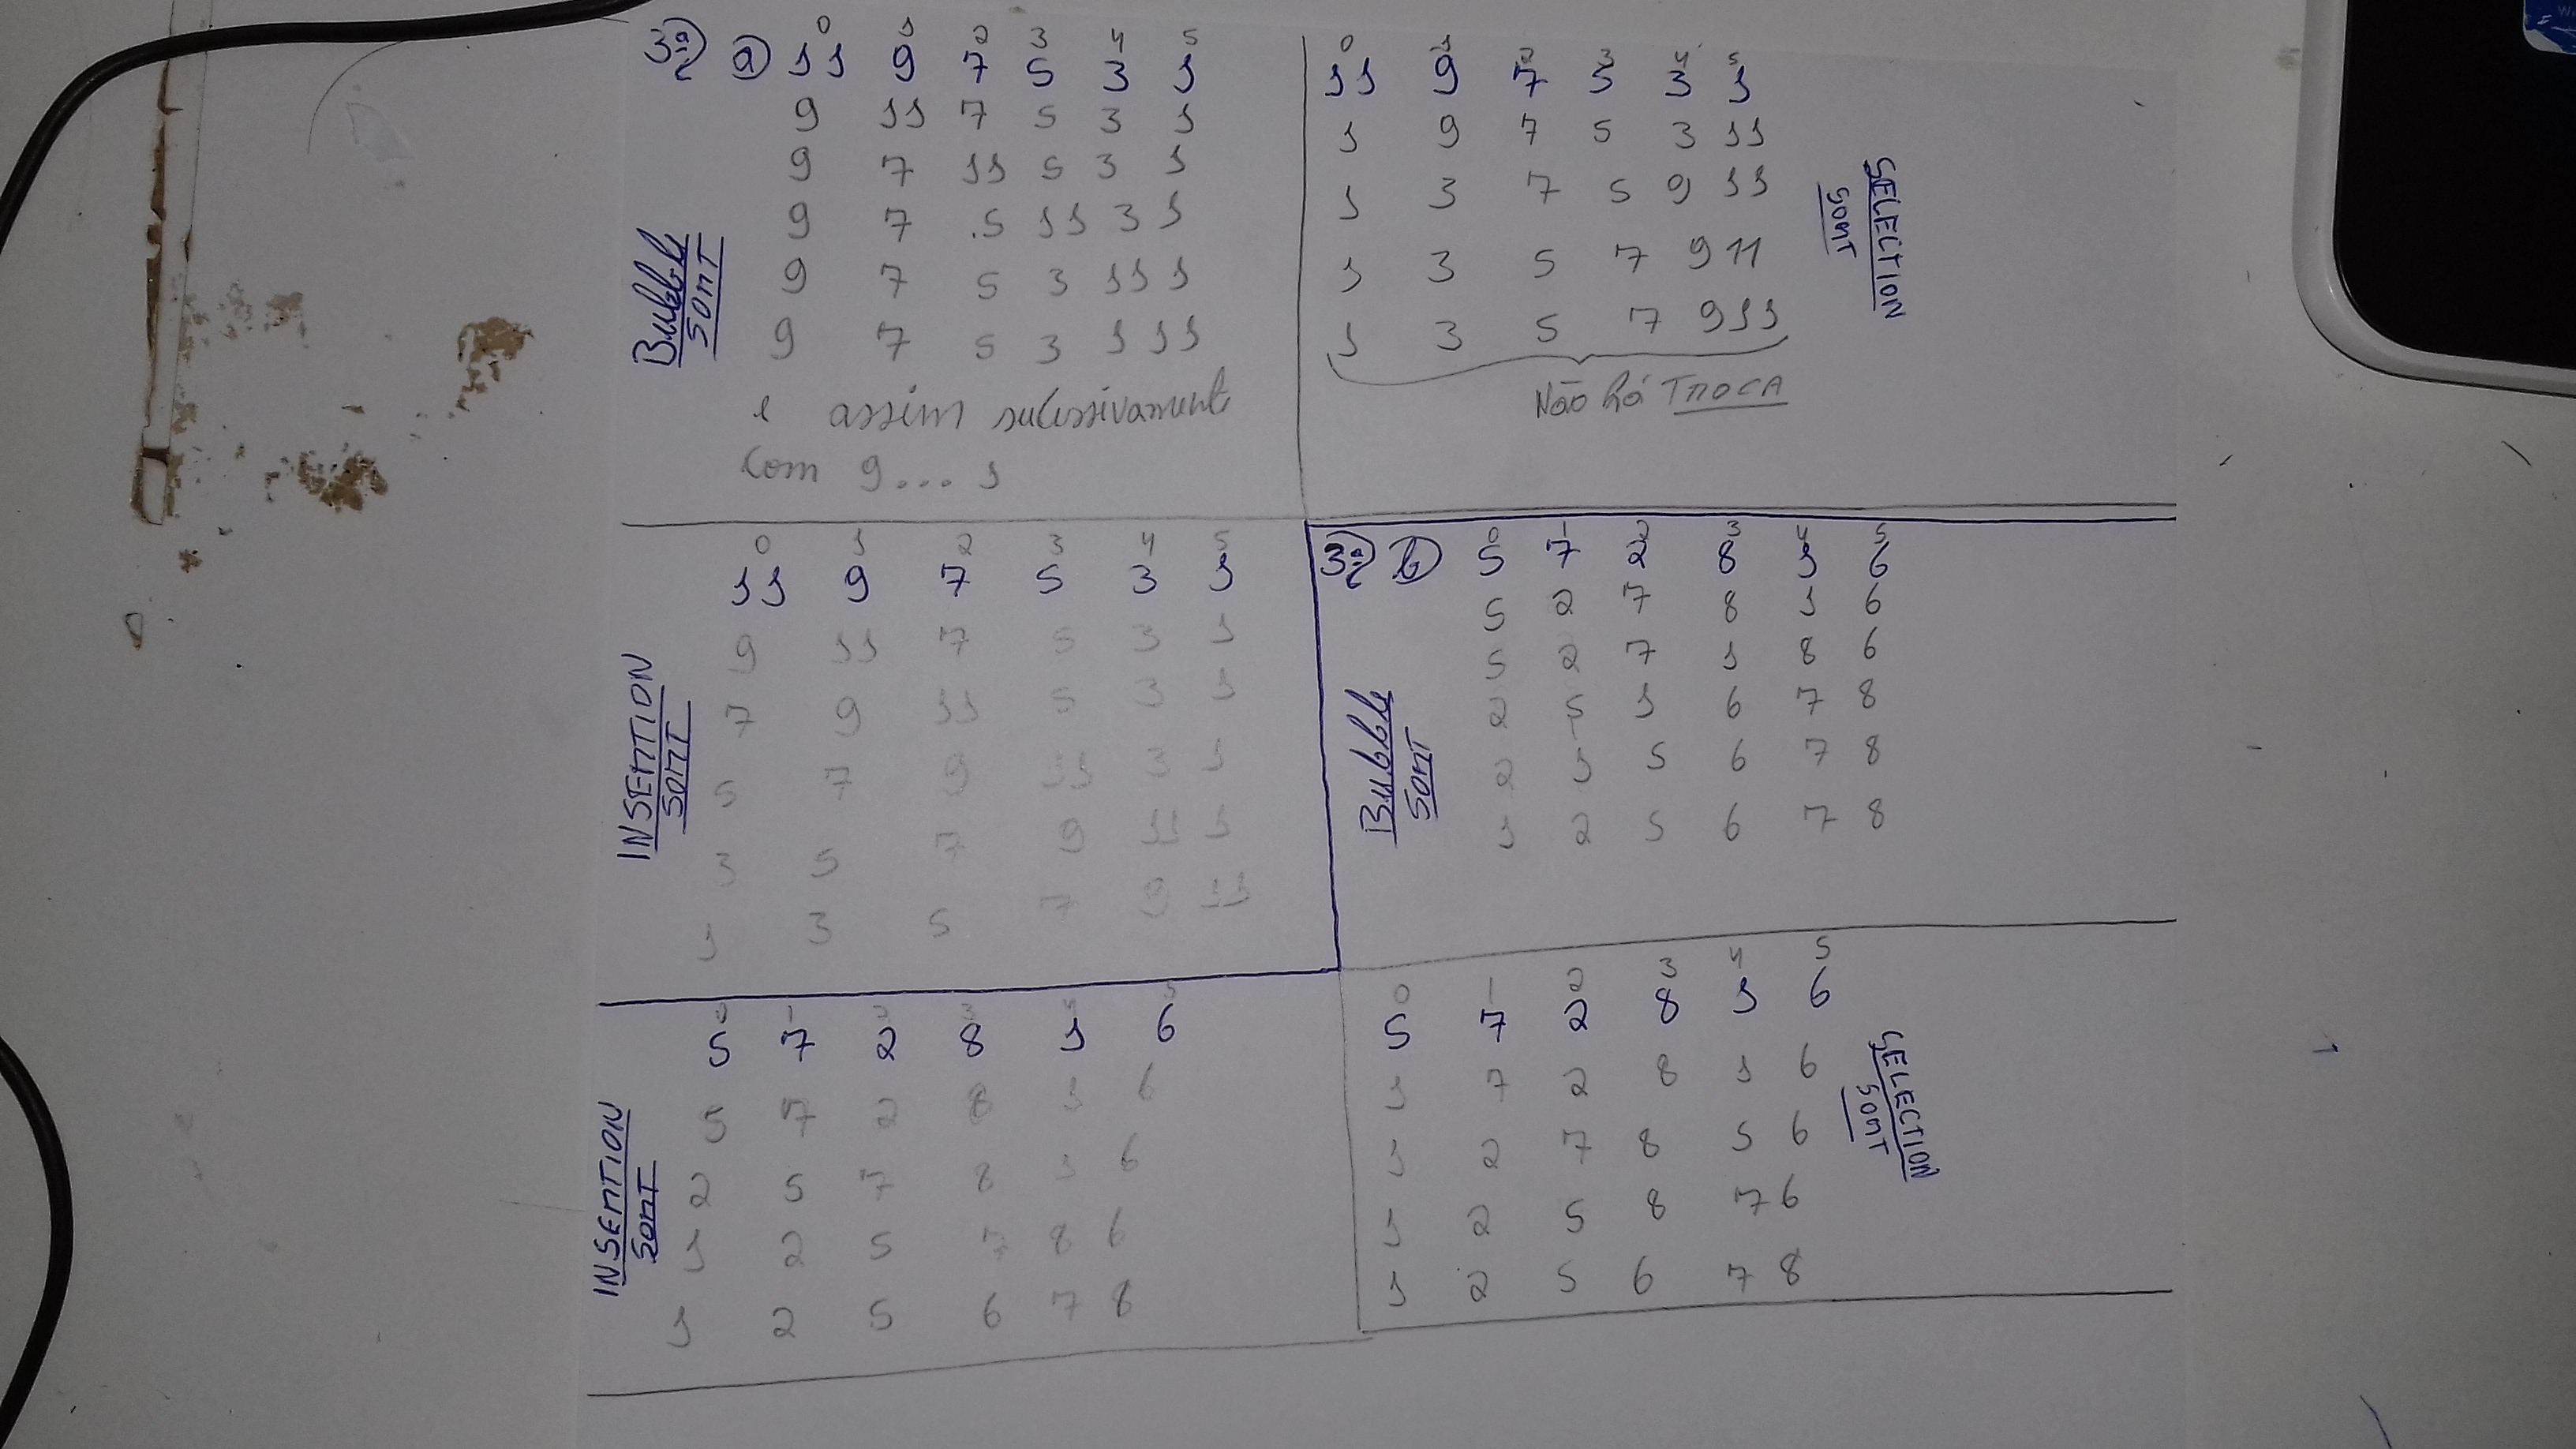 3ª) a)
Bubble
SORT
0 1 2 3 4 5
11 9 7 5 3 1
9 11 7 5 3 1
9 7 11 5 3 1
9 7 5 11 3 1
9 7 5 3 11 1
9 7 5 3 1 11
e assim sulessivamente
com 9.... 1
SELECTION
SORT
0 1 2 3 4 5
11 9 7 5 3 1
1 9 7 5 3 11
1 3 7 5 9 11
1 3 5 7 9 11
1 3 5 7 9 11
Não há TROCA
INSERTION
SORT
0 1 2 3 4 5
11 9 7 5 3 1
9 11 7 5 3 1
7 9 11 5 3 1
5 7 9 11 3 1
3 5 7 9 11 1
1 3 5 7 9 11
3ª) b)
Bubble
SORT
0 1 2 3 4 5
5 7 2 8 1 6
5 2 7 8 1 6
5 2 7 1 8 6
2 5 1 6 7 8
2 1 5 6 7 8
1 2 5 6 7 8
INSERTION
SORT
0 1 2 3 4 5
5 7 2 8 1 6
5 7 2 8 1 6
2 5 7 8 1 6
1 2 5 7 8 6
1 2 5 6 7 8
SELECTION
SORT
0 1 2 3 4 5
5 7 2 8 1 6
1 7 2 8 5 6
1 2 7 8 5 6
1 2 5 8 7 6
1 2 5 6 7 8